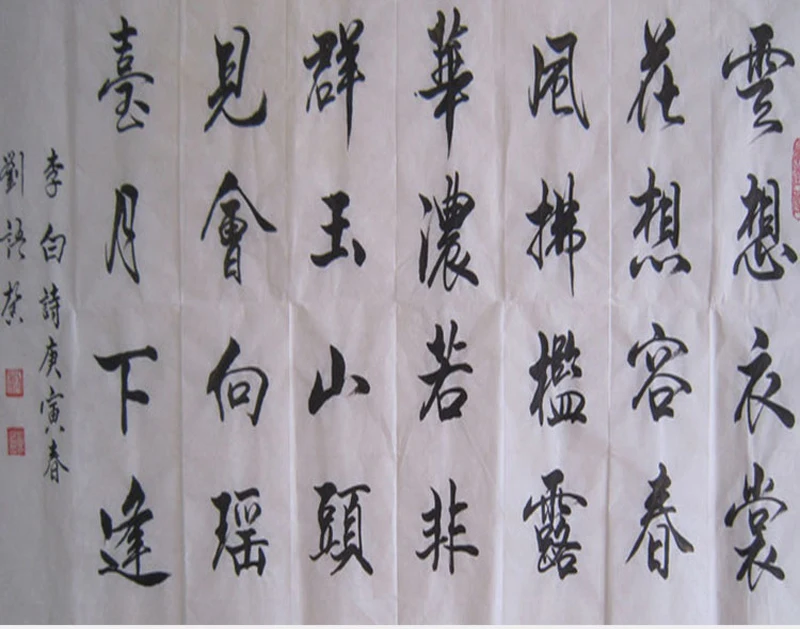 雲想衣裳
花想容春
風拂檻露
華濃若非
群玉山頭
見會向瑶
臺月下逢
李白詩庚寅春
劉